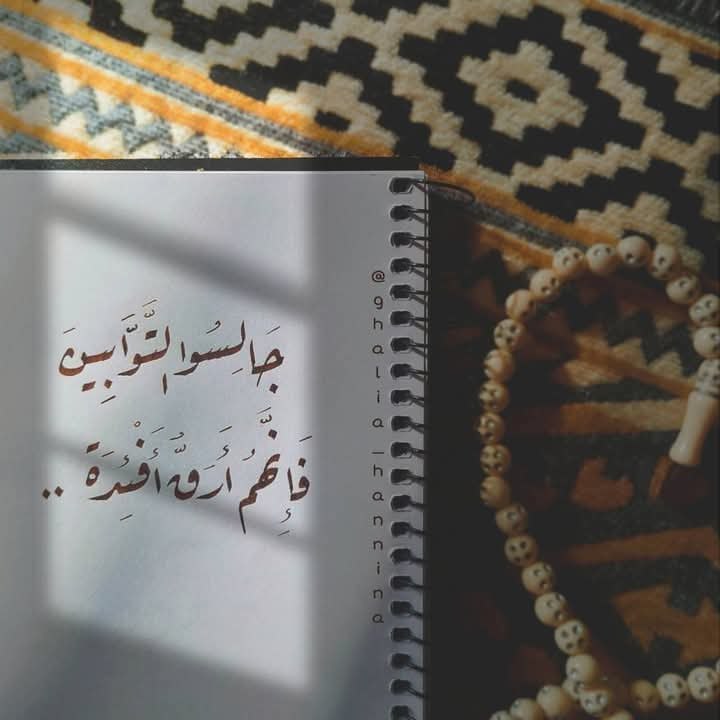 جَالِسُوا التَّوَّابِينَ
فَإِنَّهُمْ أَرَقُّ أَفْئِدَةً ..
@ghalia_hannina